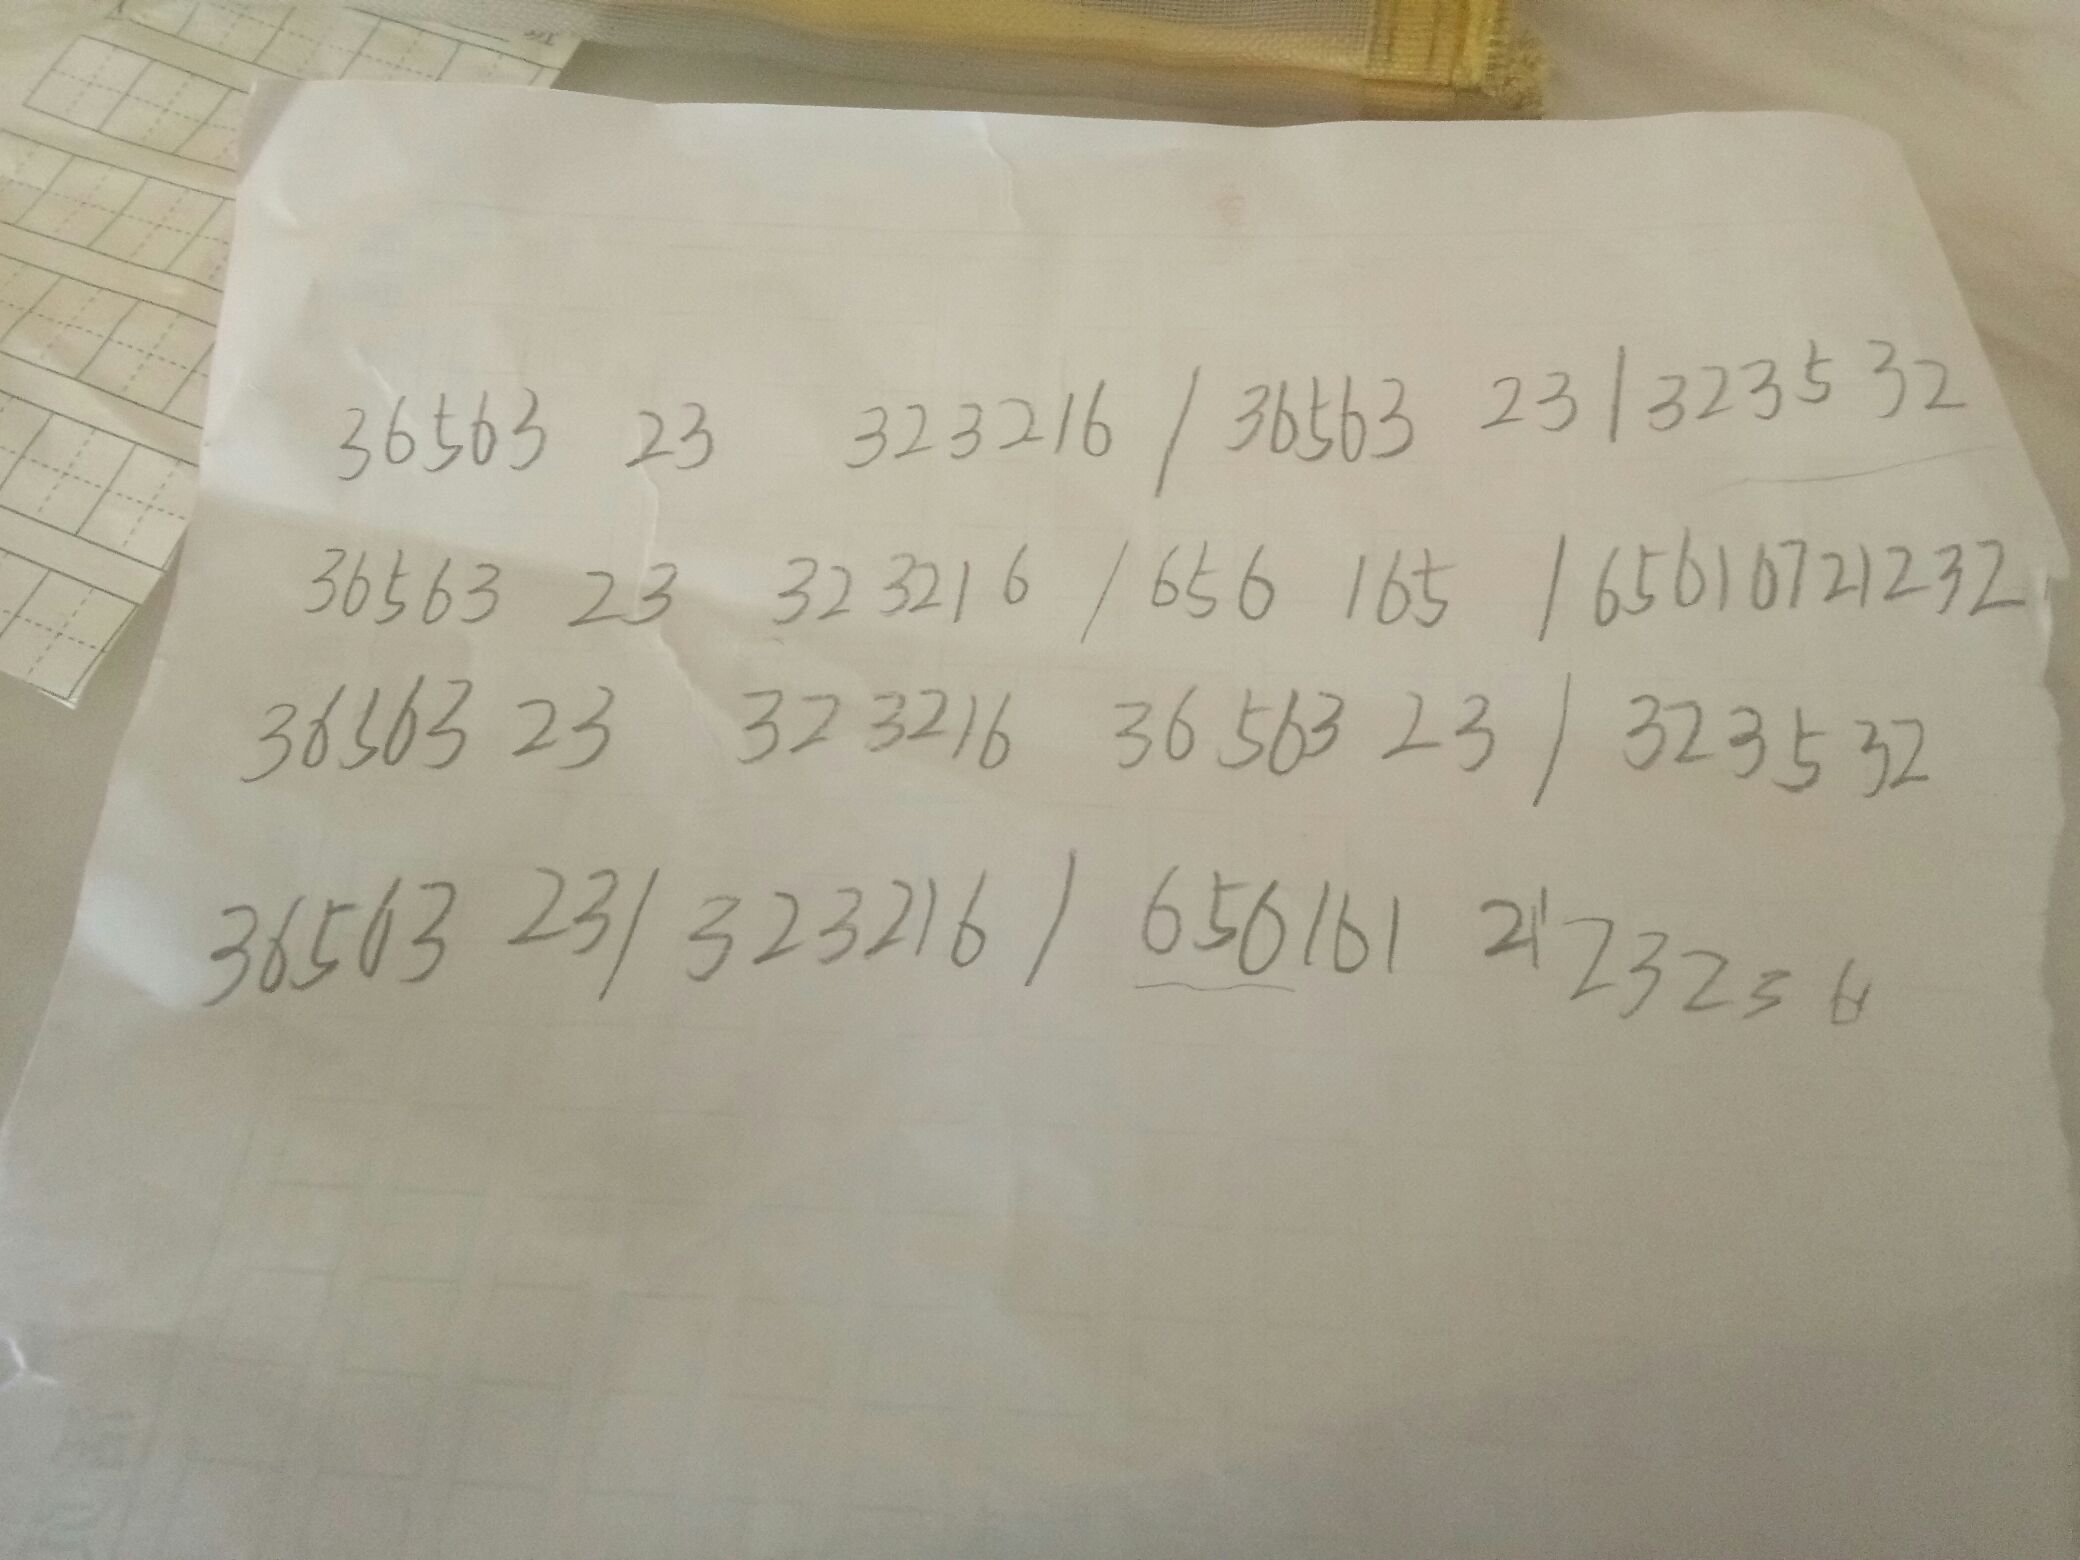 36563 23 323216 / 36563 23 / 323532
36563 23 323216 / 656 165 / 65616721232
36563 23 323216 36563 23 / 323532
36563 23 / 323216 / 656161 21 232